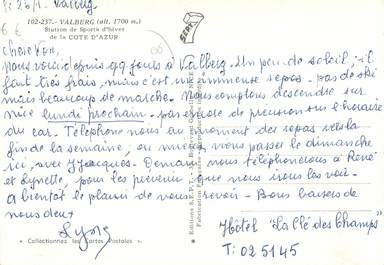 le 26/1 - Valberg
102-237.- VALBERG (alt. 1700 m.)
Station de Sports d'hiver
de la COTE D'AZUR
6 €
SEPT
Nous voici depuis qq jours à Valberg. Un peu de soleil, il
fait très frais, mais c'est un immense repos - pas de ski
mais beaucoup de marche. Nous comptons descendre sur
Nice lundi prochain - pas encore de précision sur l'horaire
du car. Téléphone nous au moment des repas vers la
fin de la semaine, ou mieux viens passer le dimanche
ici, avec Jacques. Demain nous téléphonerons à René
et Lynette, pour les prévenir que nous irons les voir -
A bientôt le plaisir de vous revoir - Bons baisers de
nous deux
Hôtel "La Clé des Champs
T: 025145
« Collectionnez les Cartes Postales »
Editions S.E.P.T. - NICE
Fabrication Française